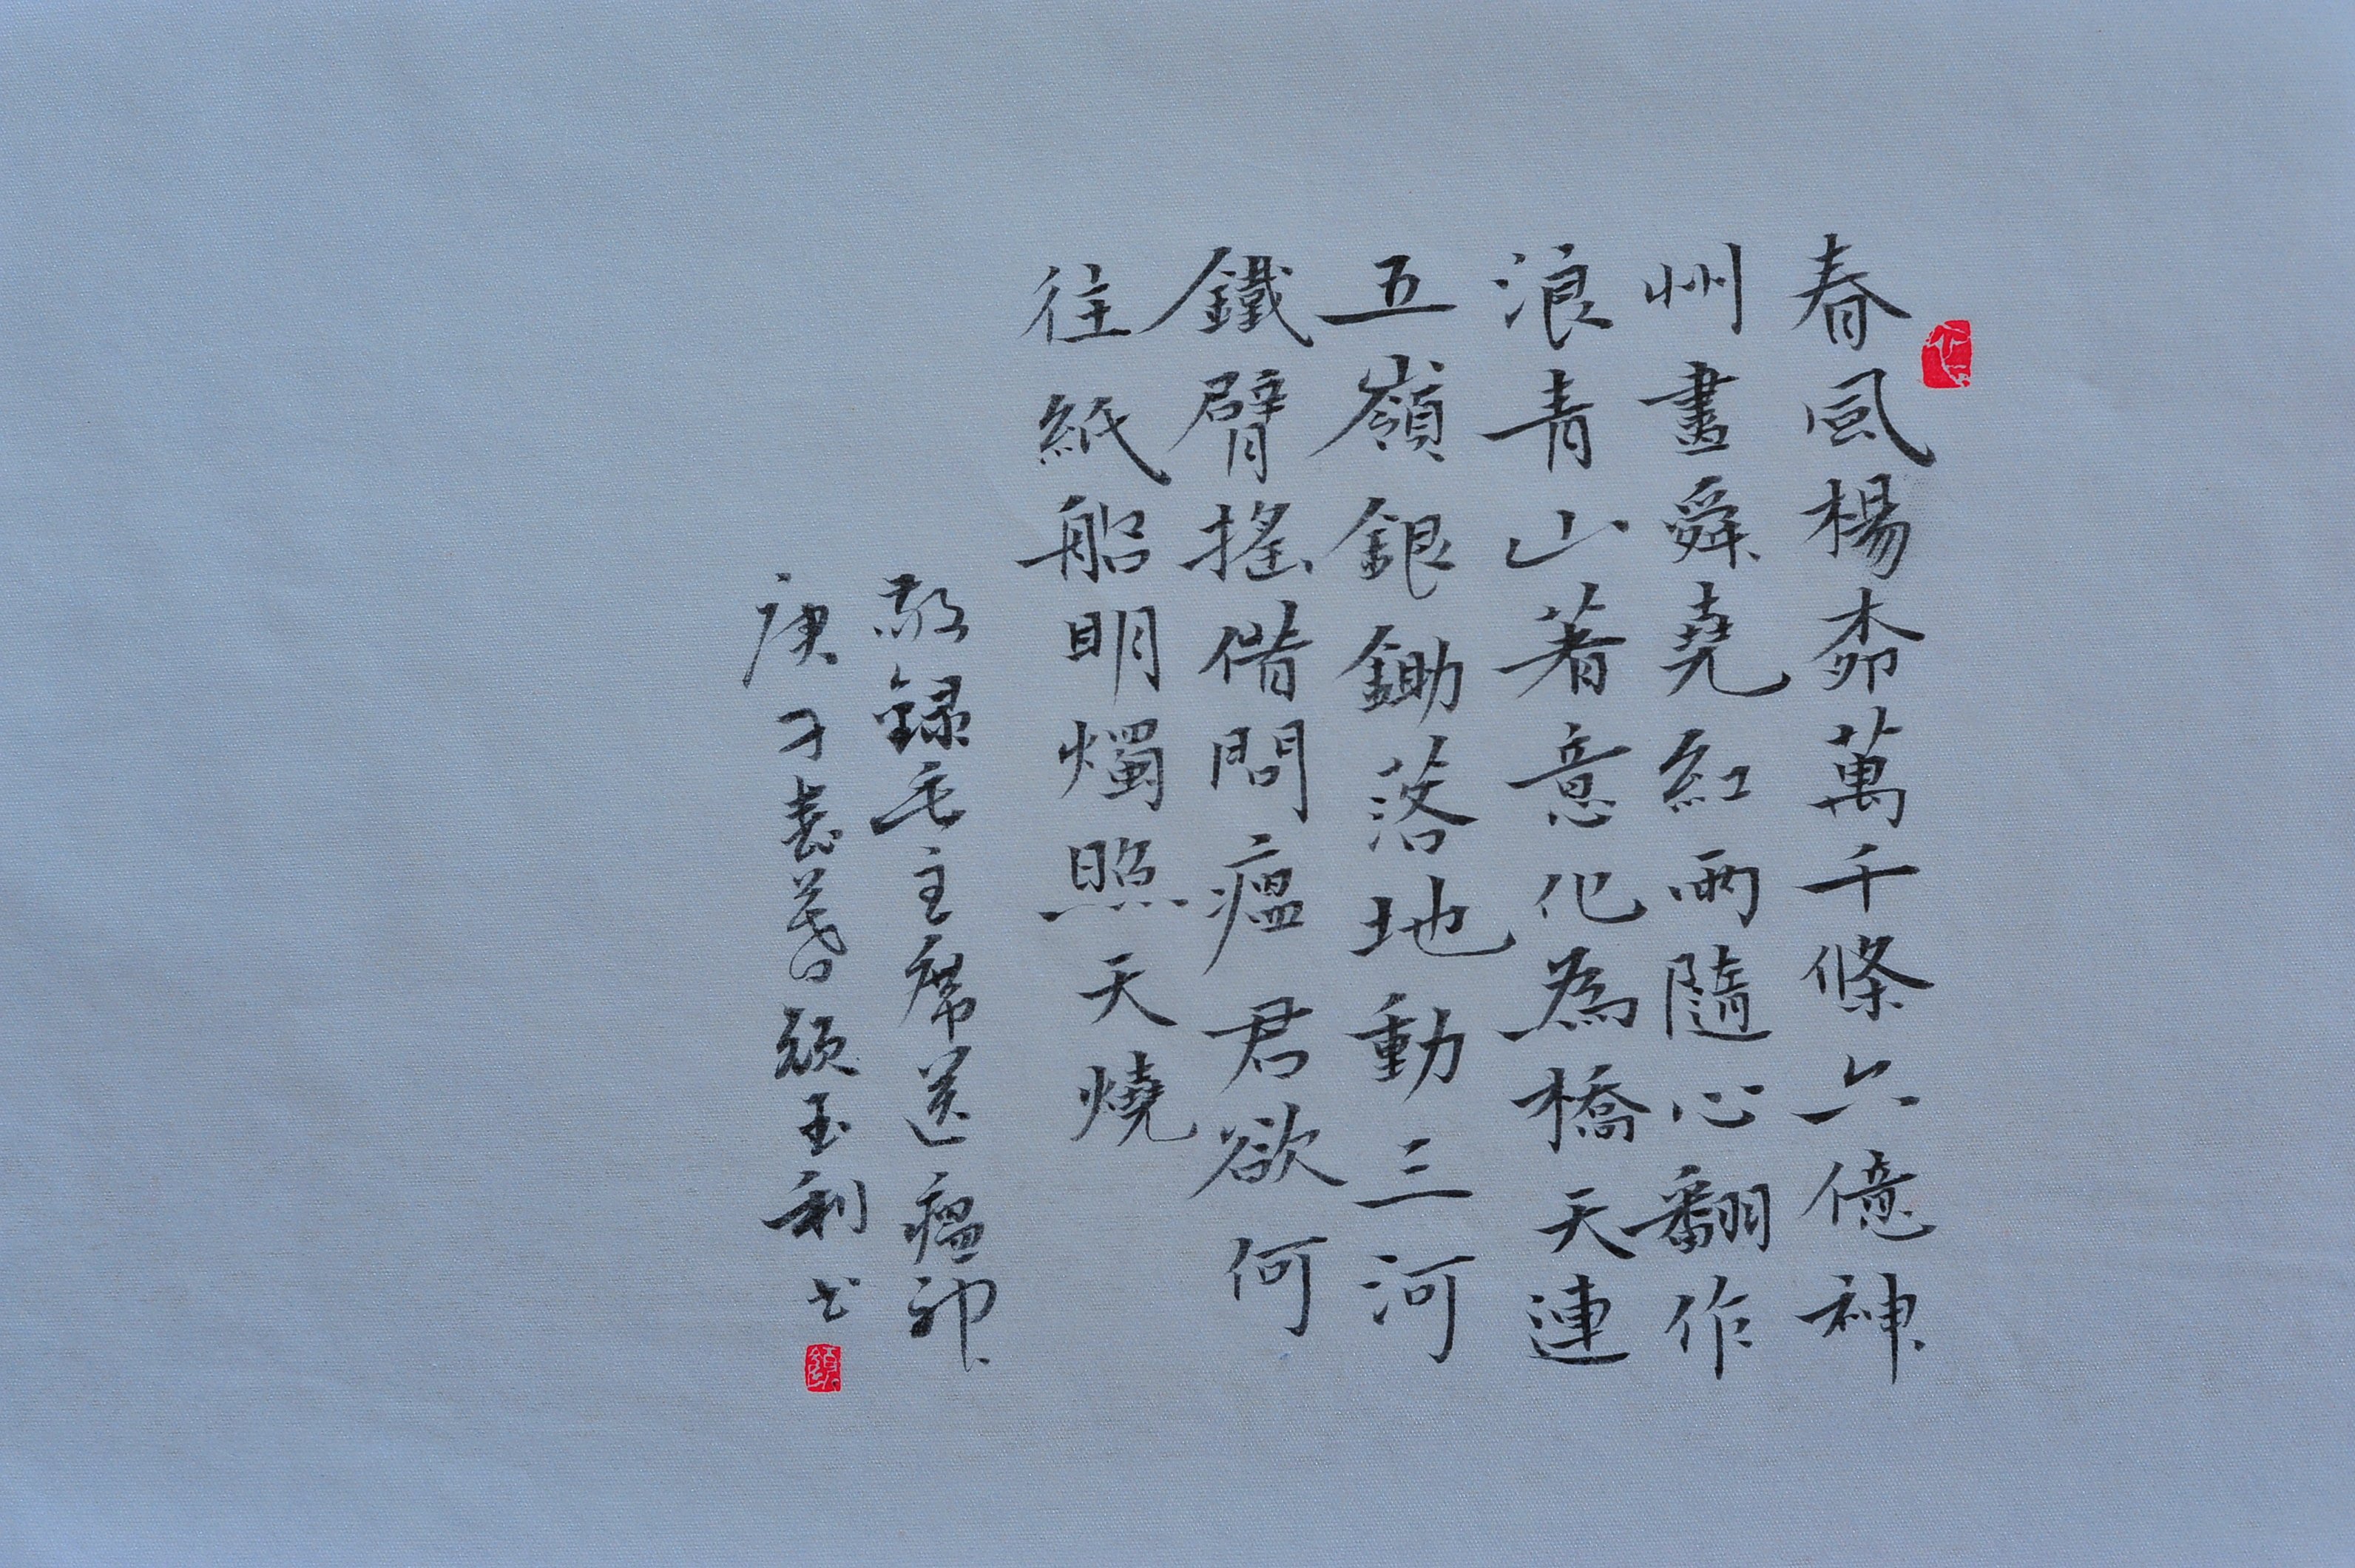 春風楊桺萬千條六億神
州畫舜堯紅雨隨心翻作
浪青山著意化為橋天連
五嶺銀鋤落地動三河
鐵臂搖借問瘟君欲何
往紙船明燭照天燒
敬録毛主席送瘟神
庚子春暮頌玉利书